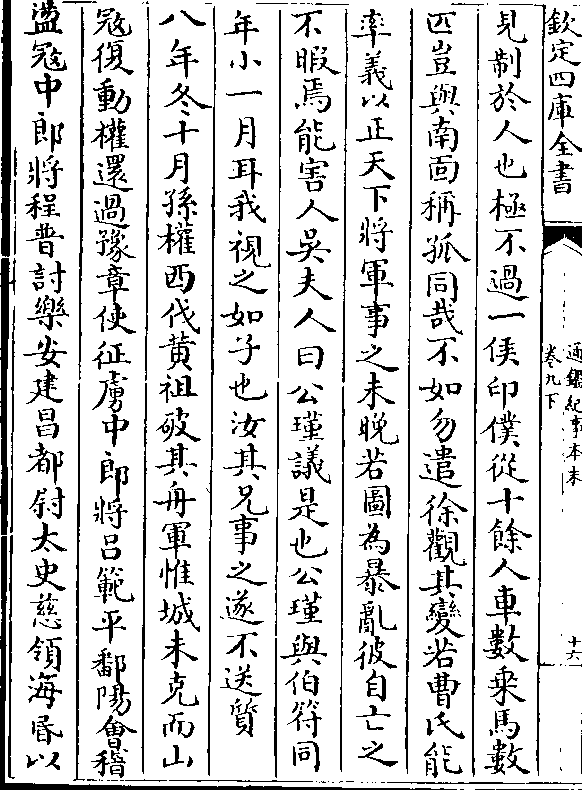 欽定四庫全書
通鑑紀事本末
卷九下
十六
見制於人也極不過一侯印僕從十餘人車數乘馬數
匹豈與南面稱孤同哉不如勿遣徐觀其變若曹氏能
率義以正天下將軍事之未晚若圖為暴亂彼自亡之
不暇焉能害人吳夫人曰公瑾議是也公瑾與伯符同
年小一月耳我視之如子也汝其兄事之遂不送質
八年冬十月孫權西伐黄祖破其舟軍惟城未克而山
寇復動權還過豫章使征虜中郎將吕範平鄱陽會稽
盪寇中郎將程普討樂安建昌都尉太史慈領海昏以